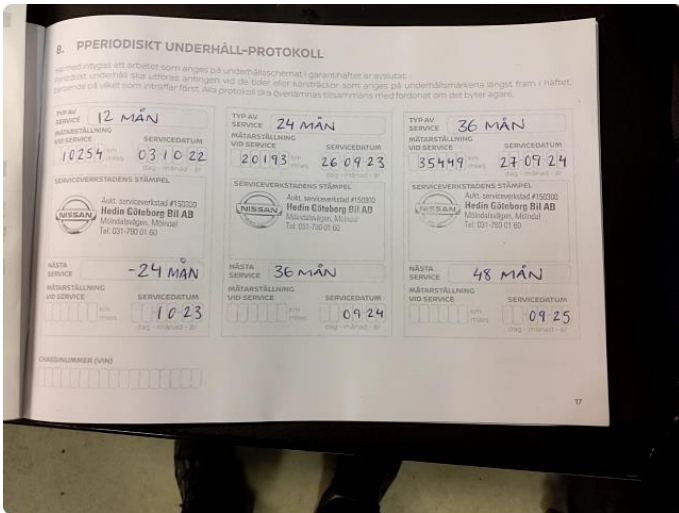 8. PPERIODISKT UNDERHÅLL-PROTOKOLL
Härmed intygas att arbetet som anges på underhållsschemat i garantihäftet är avslutat.
Periodiskt underhåll ska utföras antingen vid de tider eller körsträckor som anges på underhållsmärkena längst fram i häftet,
beroende på vilket som inträffar först. Alla protokoll ska överlämnas tillsammans med fordonet om det byter ägare.
TYP AV SERVICE 12 MÅN
MÄTARSTÄLLNING VID SERVICE SERVICEDATUM
10254 km miles 03 10 22
dag - månad - år
SERVICEVERKSTADENS STÄMPEL
NISSAN
Aukt. serviceverkstad #150300
Hedin Göteborg Bil AB
Mölndalsvägen, Mölndal
Tel: 031-790 01 60
NÄSTA SERVICE -24 MÅN
MÄTARSTÄLLNING VID SERVICE SERVICEDATUM
km miles 10-23
dag - månad - år
TYP AV SERVICE 24 MÅN
MÄTARSTÄLLNING VID SERVICE SERVICEDATUM
20193 km miles 26 09 23
dag - månad - år
SERVICEVERKSTADENS STÄMPEL
NISSAN
Aukt. serviceverkstad #150300
Hedin Göteborg Bil AB
Mölndalsvägen, Mölndal
Tel: 031-790 01 60
NÄSTA SERVICE 36 MÅN
MÄTARSTÄLLNING VID SERVICE SERVICEDATUM
km miles 09 24
dag - månad - år
TYP AV SERVICE 36 MÅN
MÄTARSTÄLLNING VID SERVICE SERVICEDATUM
35449 km miles 27 09 24
dag - månad - år
SERVICEVERKSTADENS STÄMPEL
NISSAN
Aukt. serviceverkstad #150300
Hedin Göteborg Bil AB
Mölndalsvägen, Mölndal
Tel: 031-790 01 60
NÄSTA SERVICE 48 MÅN
MÄTARSTÄLLNING VID SERVICE SERVICEDATUM
km miles 09-25
dag - månad - år
CHASSINUMMER (VIN)
17